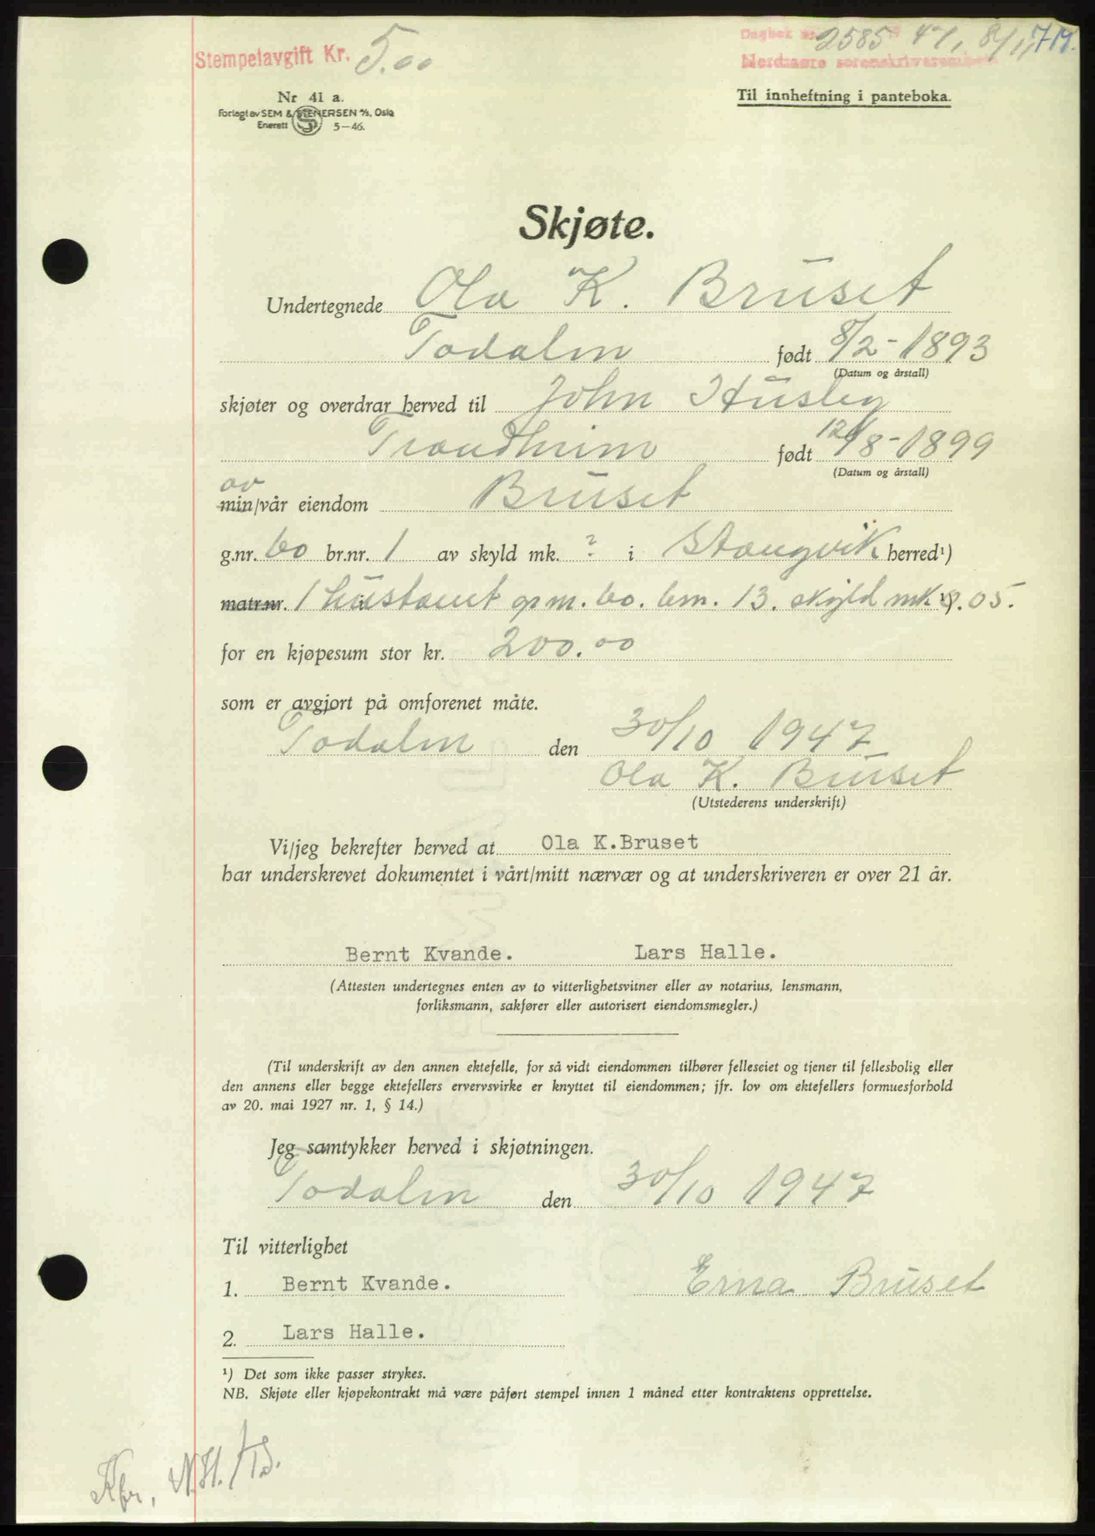 Stempelavgift Kr. 5.00
Dagbok nr. 2585 47, 8/11
Nordmøre sorenskriverembete
Nr 41 a.
Forlagt av SEM & STENERSEN A/S, Oslo
Enerett 5-46.
Til innheftning i panteboka.
Skjøte.
Undertegnede Ola K. Bruset
Todalen født 8/2-1893
(Datum og årstall)
skjøter og overdrar herved til John Husby
Trondheim født 12/8-1899
(Datum og årstall)
av
min/vår eiendom Bruset
g.nr. 60 br.nr. 1 av skyld mk. ? i Stangvik herred¹)
matr.nr. 1 hustomt gr.n. 60. b.n. 13. skyld mk 0.05.
for en kjøpesum stor kr. 200.00
som er avgjort på omforenet måte.
Todalen den 30/10 1947
Ola K. Bruset
(Utstederens underskrift)
Vi/jeg bekrefter herved at Ola K.Bruset
har underskrevet dokumentet i vårt/mitt nærvær og at underskriveren er over 21 år.
Bernt Kvande. Lars Halle.
(Attesten undertegnes enten av to vitterlighetsvitner eller av notarius, lensmann,
forliksmann, sakfører eller autorisert eiendomsmegler.)
(Til underskrift av den annen ektefelle, for så vidt eiendommen tilhører felleseiet og tjener til fellesbolig eller
den annens eller begge ektefellers ervervsvirke er knyttet til eiendommen; jfr. lov om ektefellers formuesforhold
av 20. mai 1927 nr. 1, § 14.)
Jeg samtykker herved i skjøtningen.
Todalen den 30/10 1947
Til vitterlighet
1. Bernt Kvande. Erna Bruset
2. Lars Halle.
¹) Det som ikke passer strykes.
NB. Skjøte eller kjøpekontrakt må være påført stempel innen 1 måned etter kontraktens opprettelse.
Kfr, N.H./